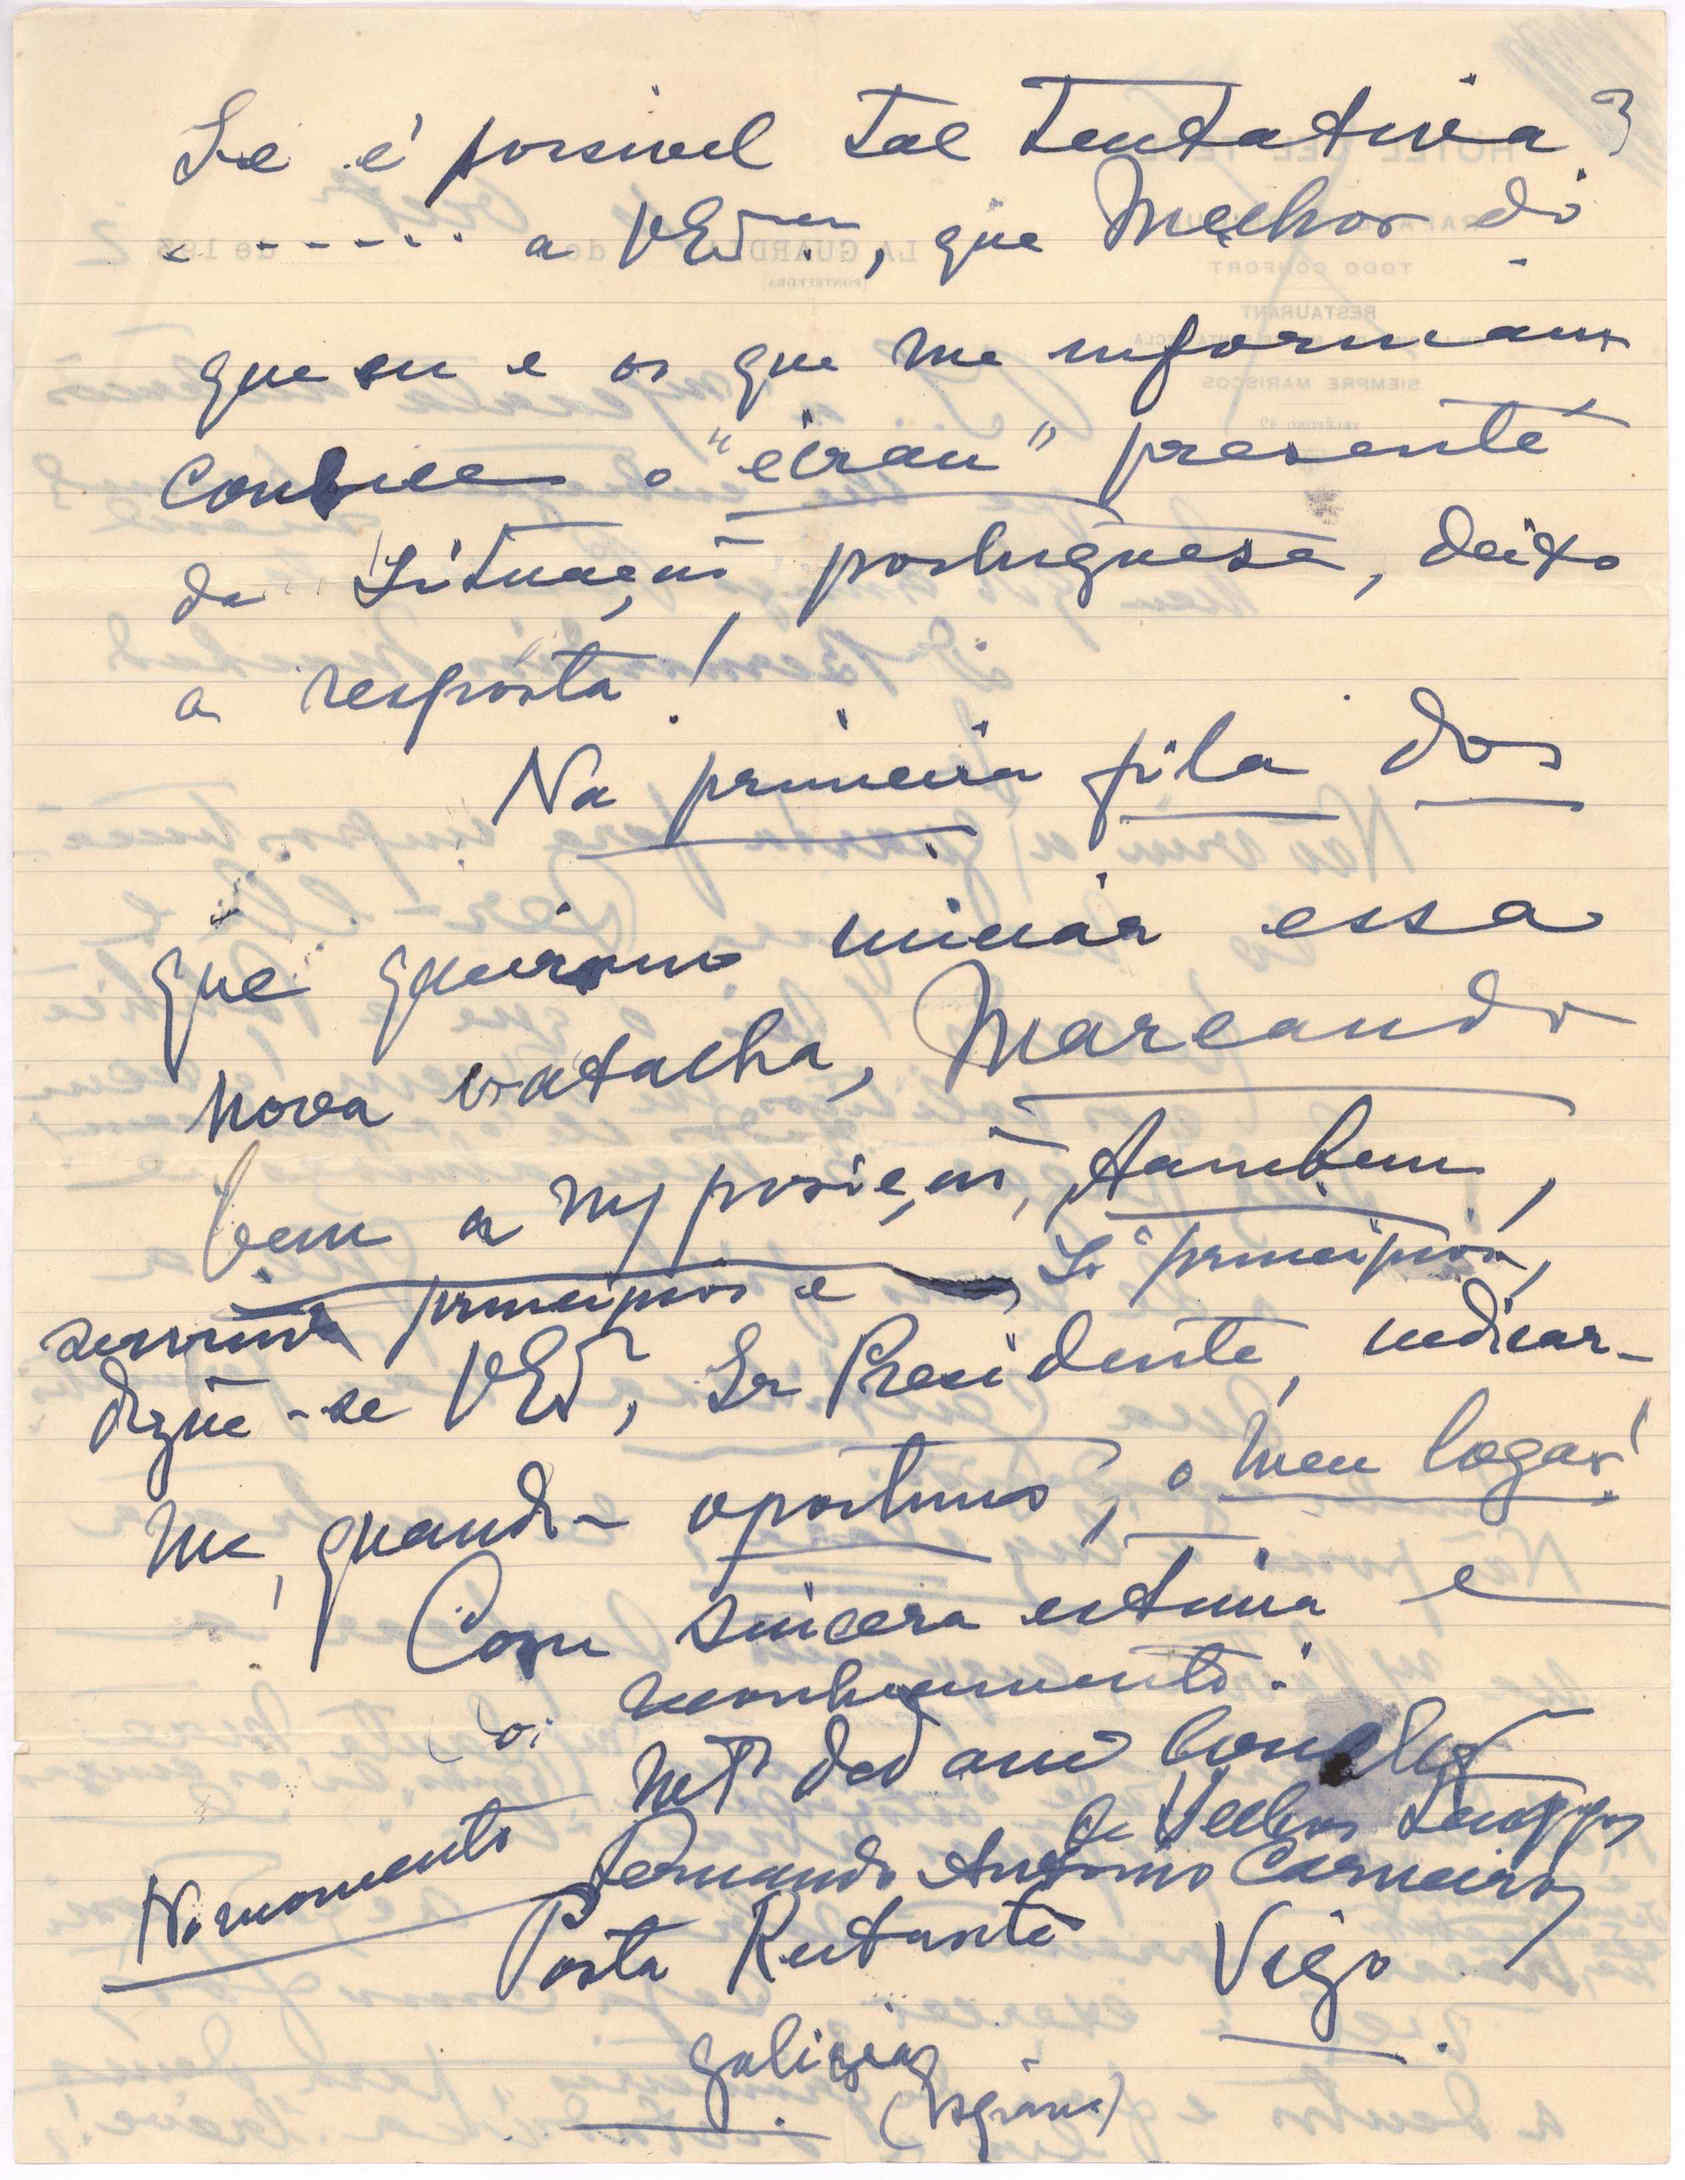 Se é possivel tal tentativa?
. - - - - - . a VExª, que Melhor do
que eu e os que me informam
conhece o "écran" presente
da Situação portuguesa, deixo
a resposta!
Na primeira fila dos
que queiram iniciár essa
nova batalha, Marcando
bem a m/ posição, tambem,
principios e Só principios,
digne-se VEx, Sr Presidente, indicar-
me, quando oportuno, o meu logar!
Com sincera estima e
reconhecimento:
de Velhos tempos
Fernando Antonio Carneiro
No momento
Posta Restante Vigo
Galizia
(Espana)